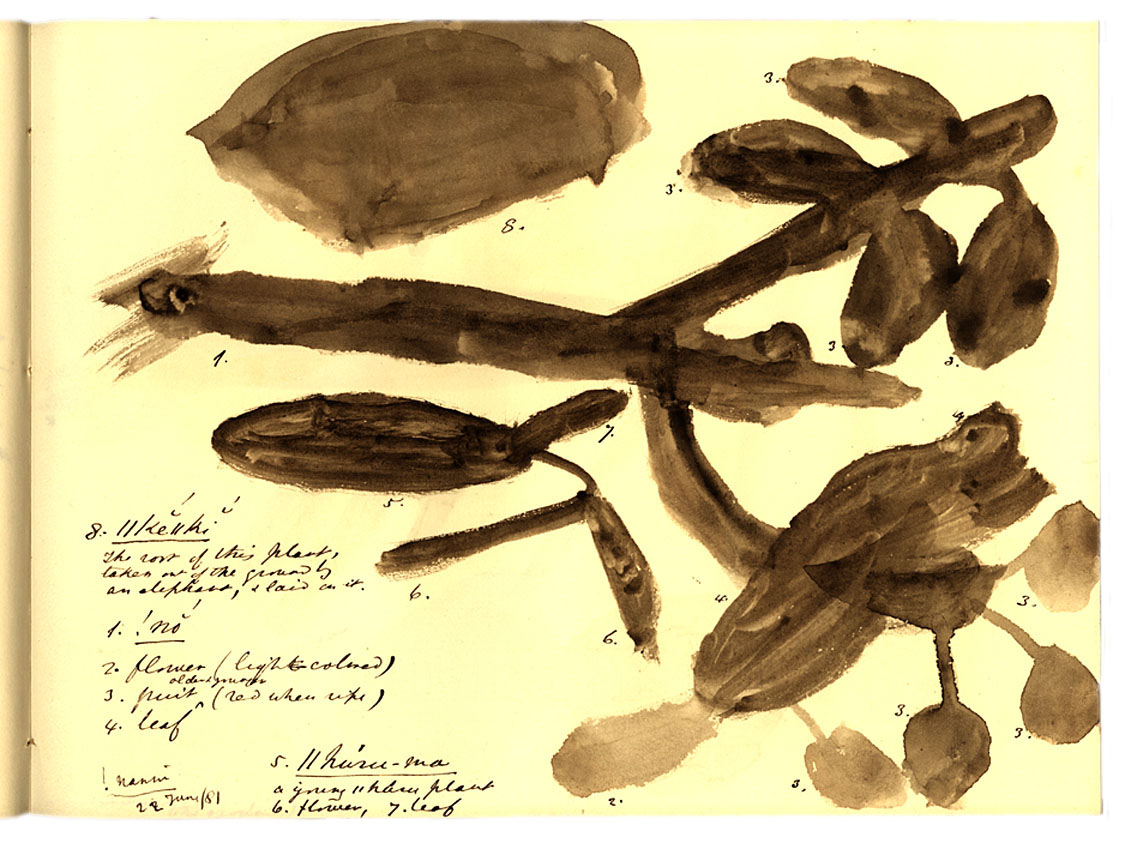 3.
3.
8.
1.
3.
3.
4.
7.
5.
6.
4.
3.
6.
3.
3.
3.
2.
8. ǁkĕǁkĭ
The root of this plant,
taken out of the ground by
an elephant, & laid on it.
1. ǃnŏ
2. flower (light-colored)
older & younger
3. fruit (red when ripe)
4. leaf
5. ǁhúru-ma
a young plant
6. flower, 7. leaf
ǃnanni
22 June/81